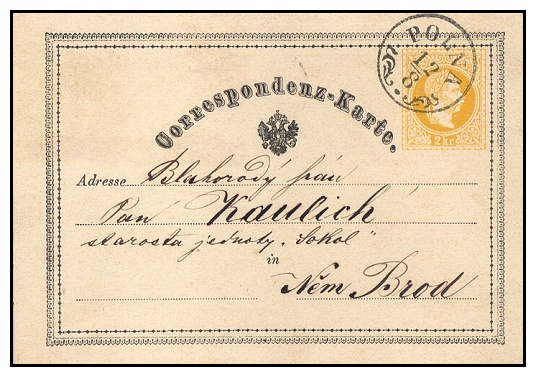 POLNA
12
8
2 kr
Correspondenz-Karte.
Adresse Blahorodý pán
Pan Kaulich
starosta jednoty „Sokol“
in
Něm Brod